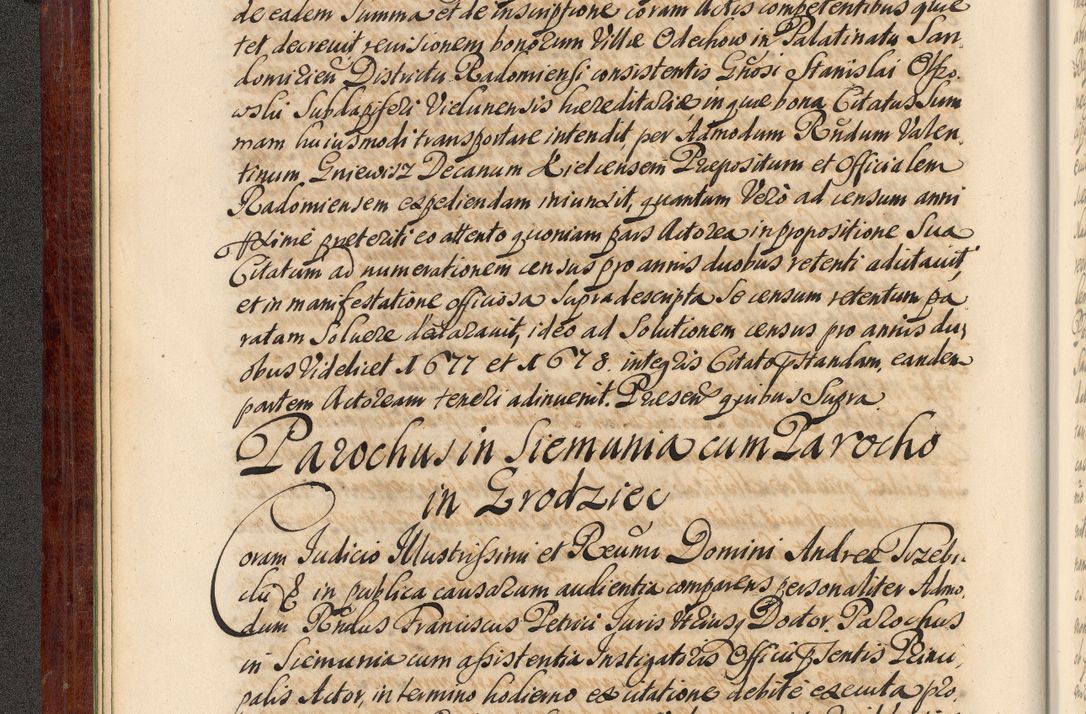 de eadem Summa et de inscriptione coram Actis competentibus quie
tet decreuit reuisionem bonorum Villæ Odechow in Palatinatu San
domirien̄ Districtu Radomiensi consistentis Gn̄osi Stanislai Osso
wski Subdapiferi Vielunensis hæreditariæ in quæ bona Citatus Sum
mam huiusmodi transportare intendit, per Admodum Rn̄dum Valen
tinum Gniewisz Decanum Kielcensem Præpositum et Officialem
Radomiensem expediendam iniunxit, quantum Verò ad censum anni
proxime preteriti eo attento quoniam pars Actorea in propositione Sua
Citatum ad numerationem census pro annis duobus retenti adcitauit
et in manifestatione officiosa Supradescripta Se censum retentum pa
ratam Soluere declarauit, ideo ad Solutionem census pro annis du,
obus Videlicet 1677 et 1678. integris Citato pstandam, eandem
partem Actoream teneri adinuenit. Præsen̄ quibus Supra.
Parochus in Siemunia cum Parocho
in Grodziec
Coram Judicio Illustrissimi et Reu̅mi Domini Andreæ Trzebi,
cki & in publica causarum audientia comparens personaliter Admo,
dum Rn̄dus Franciscus Petrici Juris Vtriusq Doctor Parochus
in Siemunia cum assistentia Instigatoris Officii psentis Princi,
palis Actor, in termino hodierno ex citatione debite executa pro,